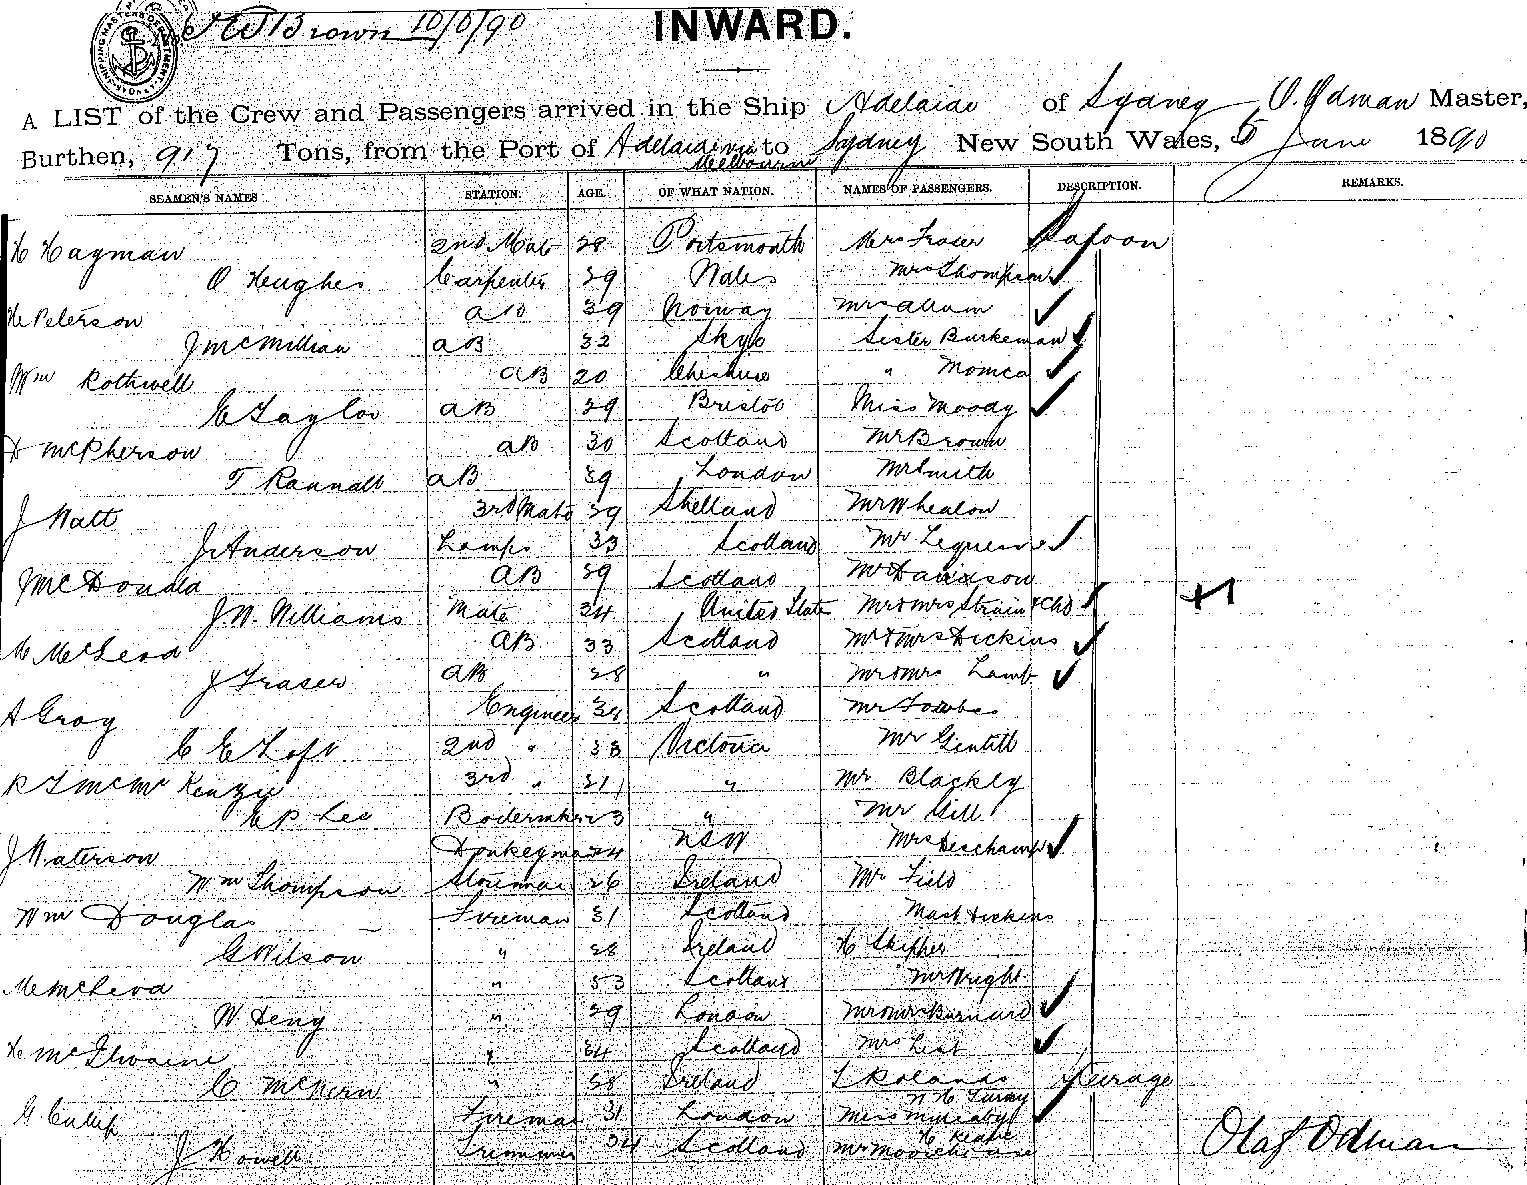 H W Brown 10/6/90
INWARD.
A LIST of the Crew and Passengers arrived in the Ship Adelaide of Sydney, O. Odman Master,
Burthen, 917 Tons, from the Port of Adelaide via Melbourne to Sydney New South Wales, 5 June 1890
SEAMEN'S NAMES STATION. AGE. OF WHAT NATION. NAMES OF PASSENGERS. DESCRIPTION. REMARKS.
H Hagman 2nd Mate 28 Portsmouth Mrs Fraser Saloon
O Hughes Carpenter 29 Wales Mrs Thompson
He Peterson AB 39 Norway Mrs Allum
J McMillian AB 32 Skye Sister Burkeman
Wm Rothwell AB 20 Cheshire " Monica
C Taylor AB 29 Bristol Miss Moody
D McPherson AB 30 Scotland Mr Brown
T Randall AB 39 London Mr Smith
J Watt 3rd Mate 29 Shetland Mr Whealon
J Anderson Lamps 33 Scotland Mr Lequesne
J McDonald AB 29 Scotland Mr Davidson
J. W. Williams Mate 34 United States Mr & Mrs Strain & Chd
M McLeod AB 33 Scotland Mr & Mrs Dickins
J Fraser AB 28 " Mr & Mrs Lamb
A Gray Engineer 38 Scotland Mr
C E Loft 2nd " 33 Victoria Mr Gentill
R T McKenzie 3rd " 21 " Mr Blackly
P Lee 23 " Mr Gill
J Waterson Donkeyman 24 NSW Mrs Deschamps
Wm Thompson Storeman 26 Ireland Mr Field
Wm Douglas Fireman 31 Scotland Mast Dickins
G Wilson " 28 Ireland H Skipper
M McLeod " 53 Scotland Mr Wright
W Deng " 29 London Mr & Mrs Burnard
H McIlwaine " 34 Scotland Mrs List
C McKern " 28 Ireland Rolands Steerage
G Cullip Fireman 31 London Miss
J Howell Trimmer 34 Scotland Mr Moorehouse
Olaf Odman